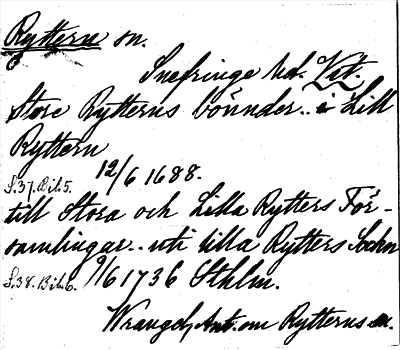 Ryttern sn.
Snefringe hd. Vst.
Store Rytterns bönnder.. i Lill
Ryttern
S.37. Bil. 5. 12/6 1688.
till Stora och Lilla Rytters För-
samlingar.. uti lilla Rytters Sochn
S.38. Bil. 6. 9/6 1736 Sthlm.
Wrangel, Ant. om Rytterns sn.